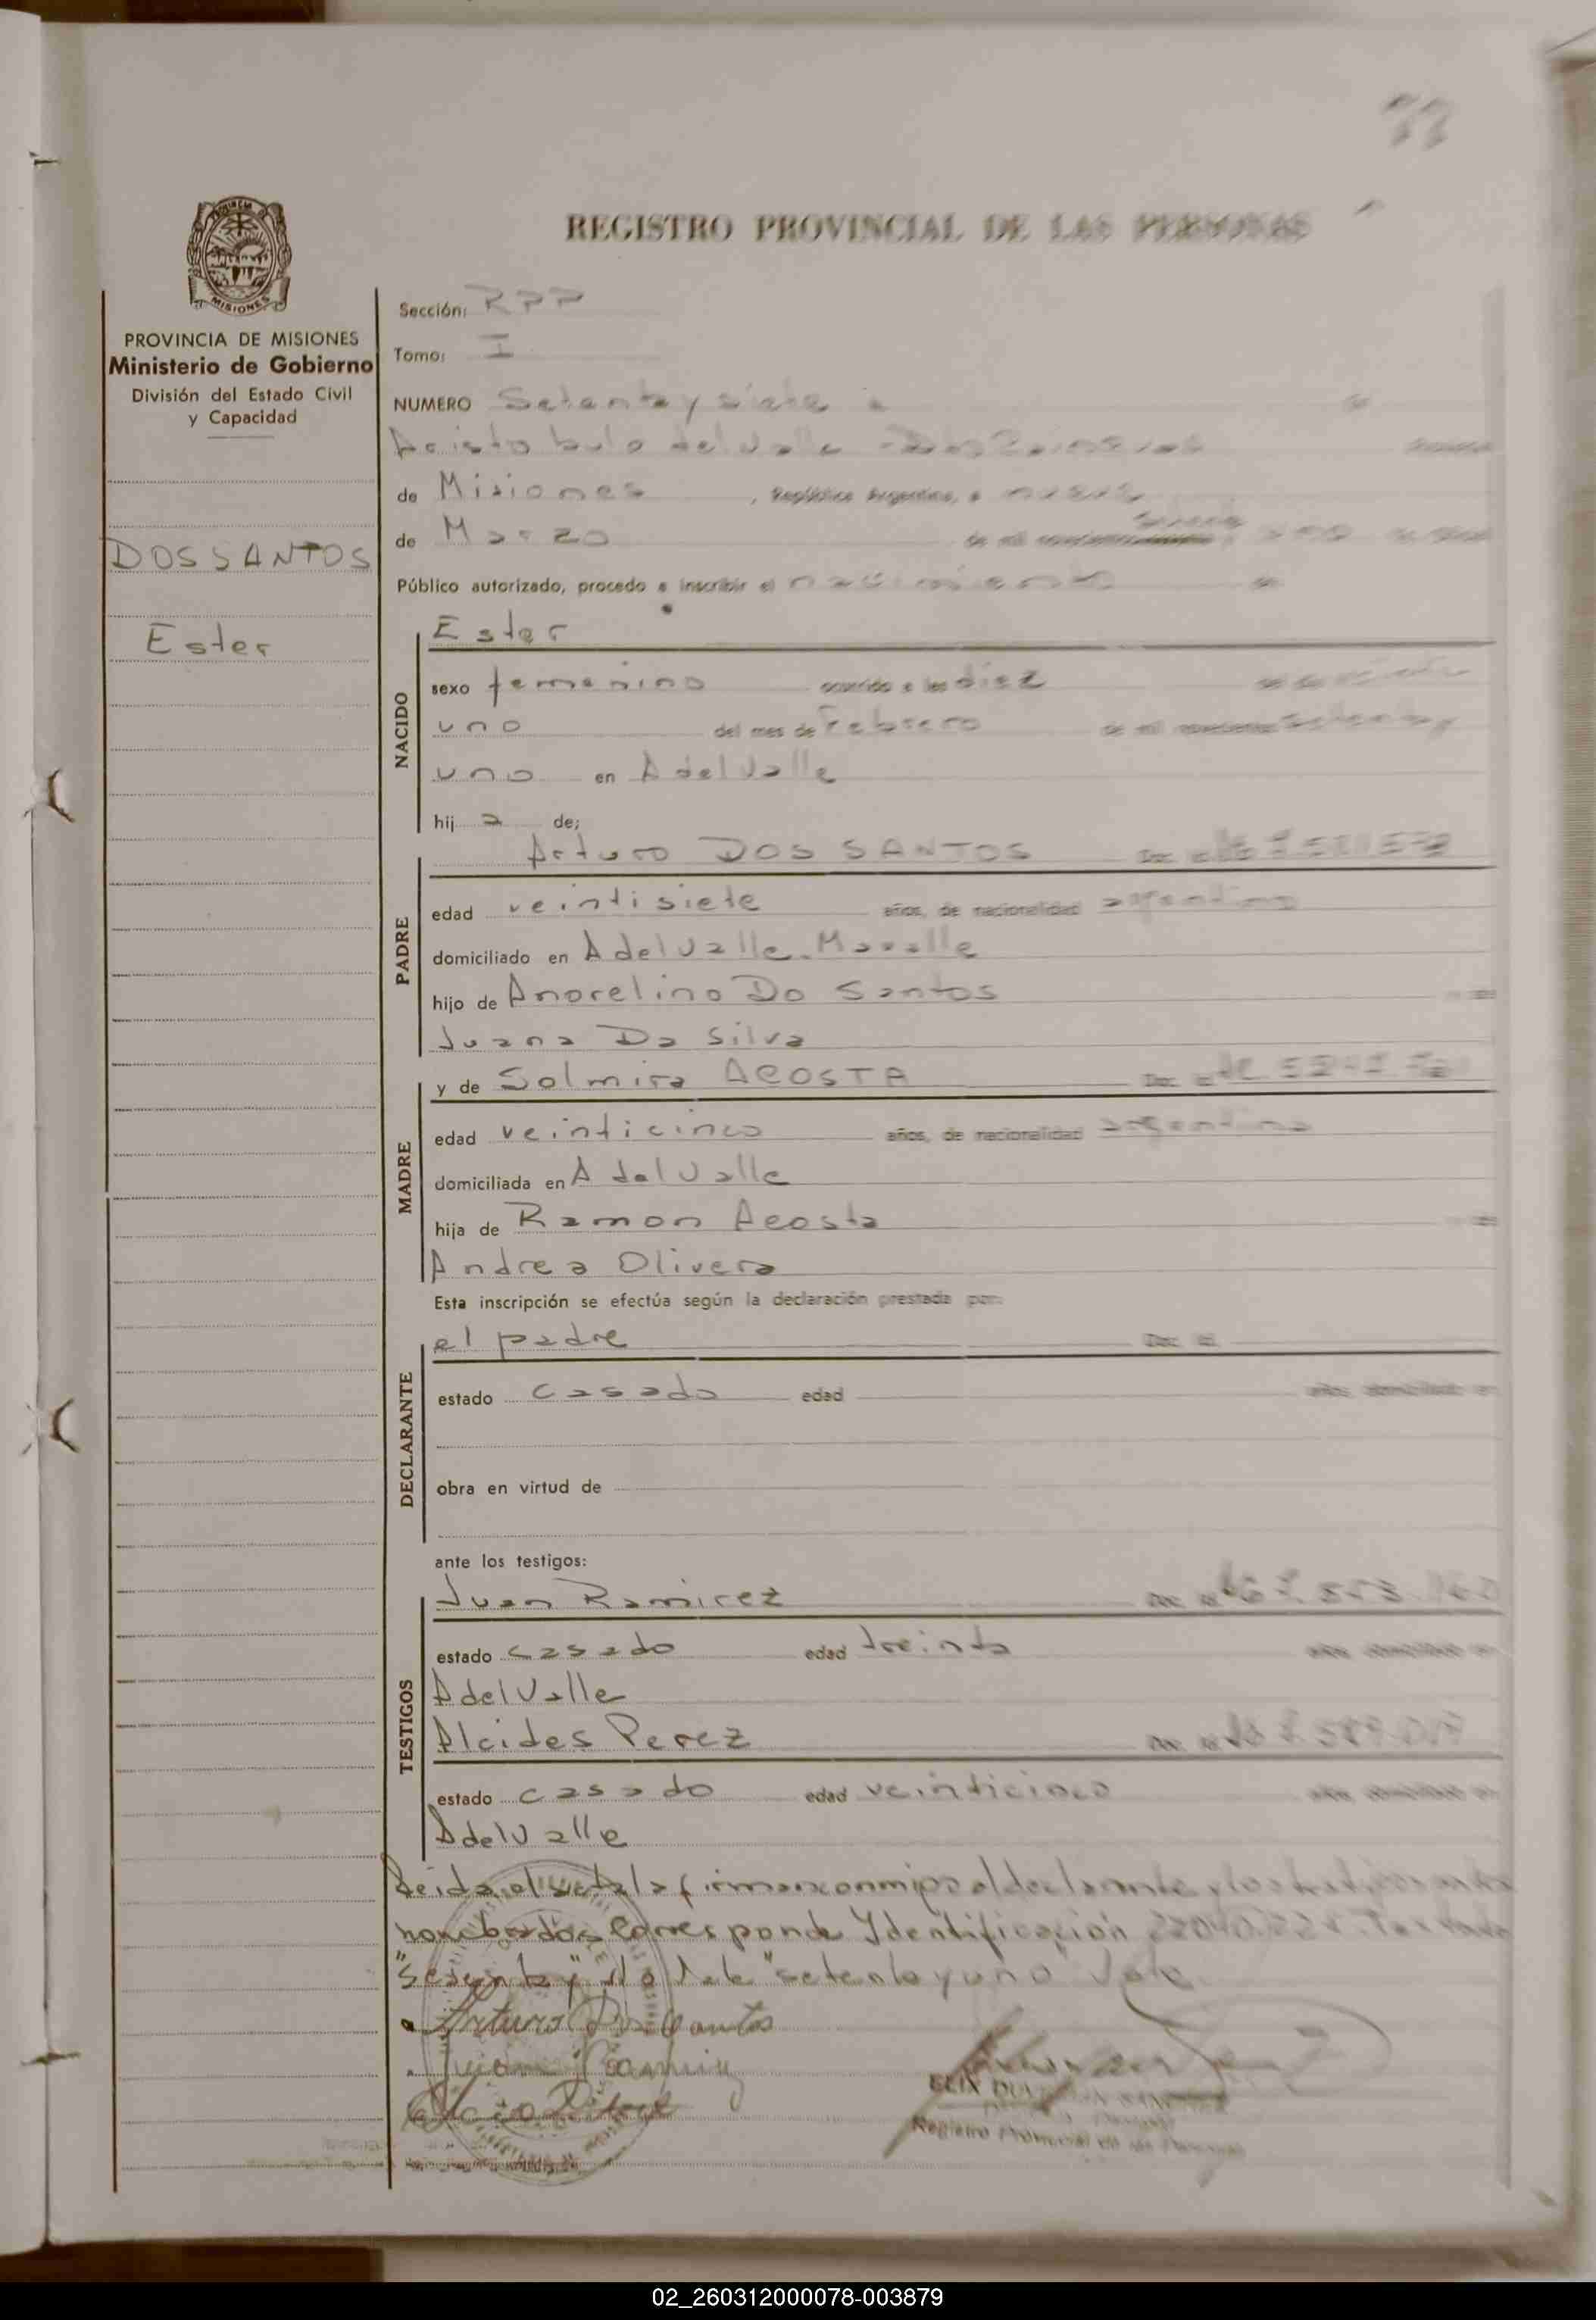 77
REGISTRO PROVINCIAL DE LAS PERSONAS
PROVINCIA DE MISIONES
Ministerio de Gobierno
División del Estado Civil
y Capacidad
DOS SANTOS
Ester
Sección: RPP
Tomo: I
NUMERO Setenta y siete
Aristobulo del Valle
de Misiones, República Argentina, a nueve
de Marzo de mil novecientos
Público autorizado, procedo a inscribir el nacimiento de
NACIDO
Ester
sexo femenino ocurrido a las diez
uno del mes de Febrero de mil novecientos setenta y
uno en A del Valle
hij a de;
PADRE
Arturo DOS SANTOS Doc.
edad veintisiete años, de nacionalidad argentina
domiciliado en A del Valle
hijo de Anorelino Do Santos
Juana Da Silva
MADRE
y de Solmira ACOSTA Doc.
edad veinticinco años, de nacionalidad argentina
domiciliada en A del Valle
hija de Ramon Acosta
Andrea Olivera
Esta inscripción se efectúa según la declaración prestada por:
DECLARANTE
el padre
estado casado edad años, domiciliado en
obra en virtud de
ante los testigos:
TESTIGOS
Juan Ramirez
estado casado edad treinta años, domiciliado en
A del Valle
Alcides Perez
estado casado edad veinticinco años, domiciliado en
A del Valle
Leida el acta la firmaron conmigo el declarante y los testigos
nombrados Corresponde Ydentificación
"setenta y uno" Vale
Arturo Dos Santos
Registro Provincial de las Personas
02_260312000078-003879